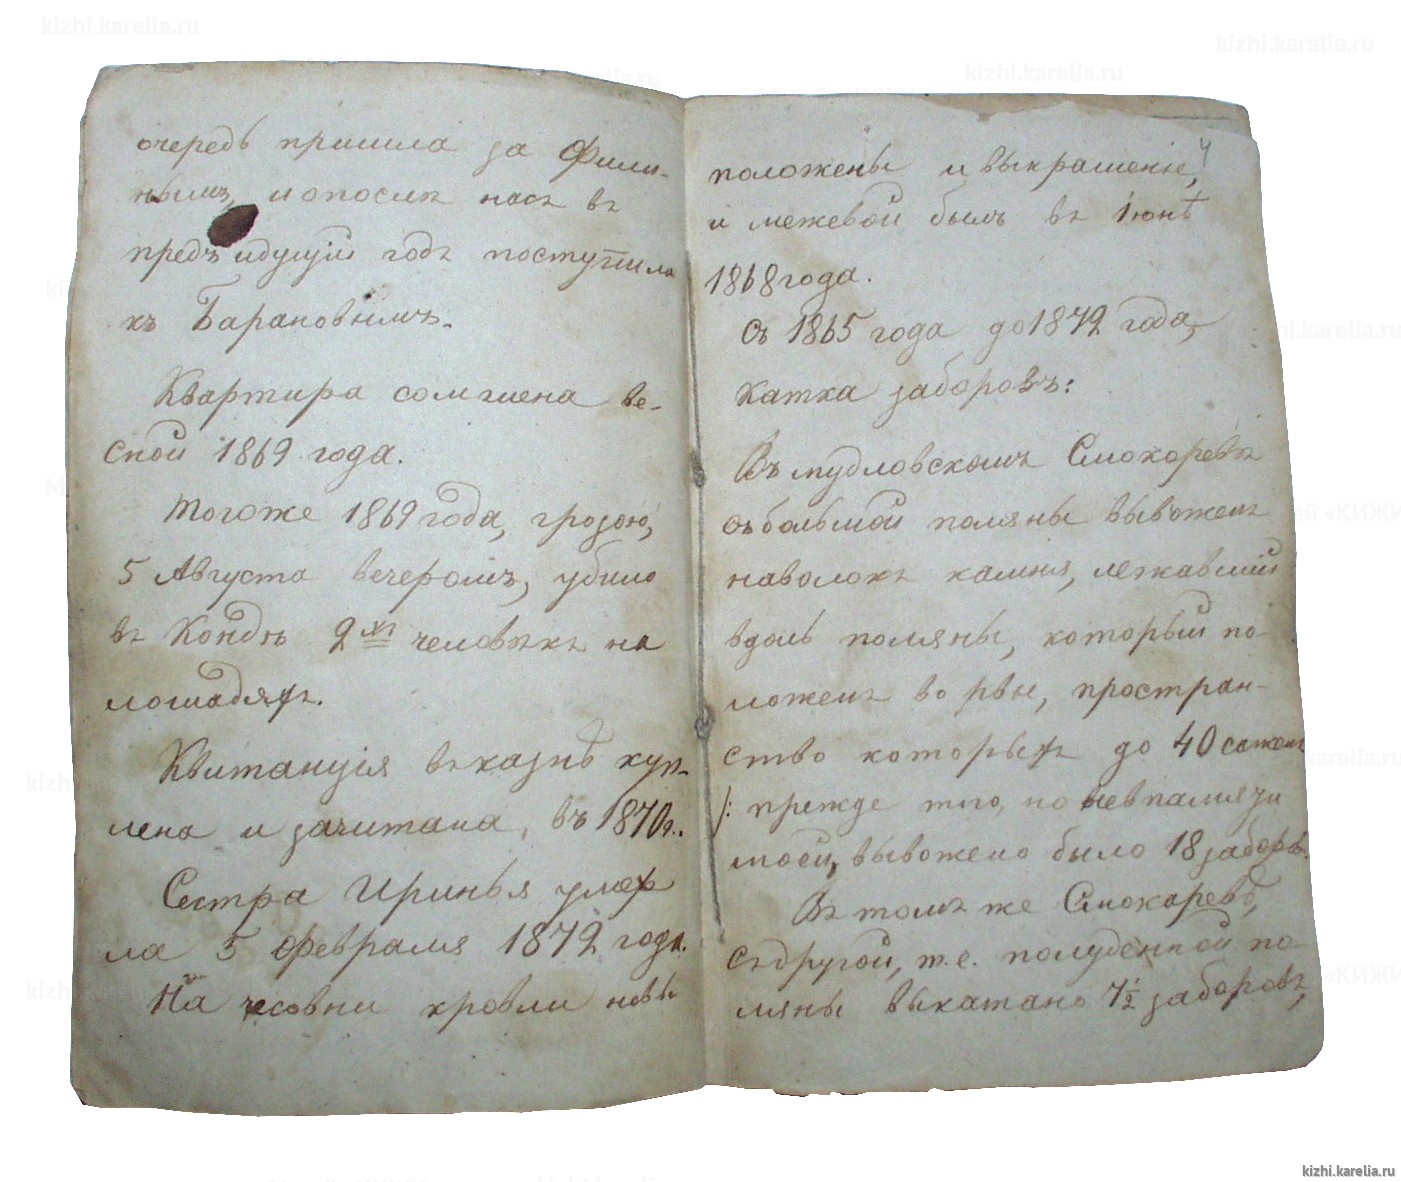 очередь пришла за Фили-
нымъ, и опосля насъ въ
предъидущiй годъ поступила
къ Барановымъ.
Квартира сомшена ве-
сной 1869 года.
Тогоже 1869 года, грозою,
5 Августа вечеромъ, убило
въ Кондѣ 2хъ человѣкъ на
лошадяхъ.
Квитанцiя въ казнѣ куп-
лена и зачитана, въ 1870 г.
Сестра Иринья умер
ла 5 февраля 1872 года.
На часовни кровли новы
4
положены и выкрашенiе,
и межевой былъ въ Iюнѣ
1868 года.
Съ 1865 года до 1872 года,
катка заборовъ:
Въ мудловскомъ Смокоревѣ
съ большой поляны вывожемъ
наволокъ камня, лежавшiй
вдоль поляны, который по-
ложенъ во рвы, простран-
ство которыхъ до 40 сажень
/: прежде того, но не в памяти
моей, вывожено было 18 заборъ.
Въ томъ же Смокаревѣ,
съ другой, т.е. полуденной по-
ляны выкатано 7½ заборовъ,
kizhi.karelia.ru